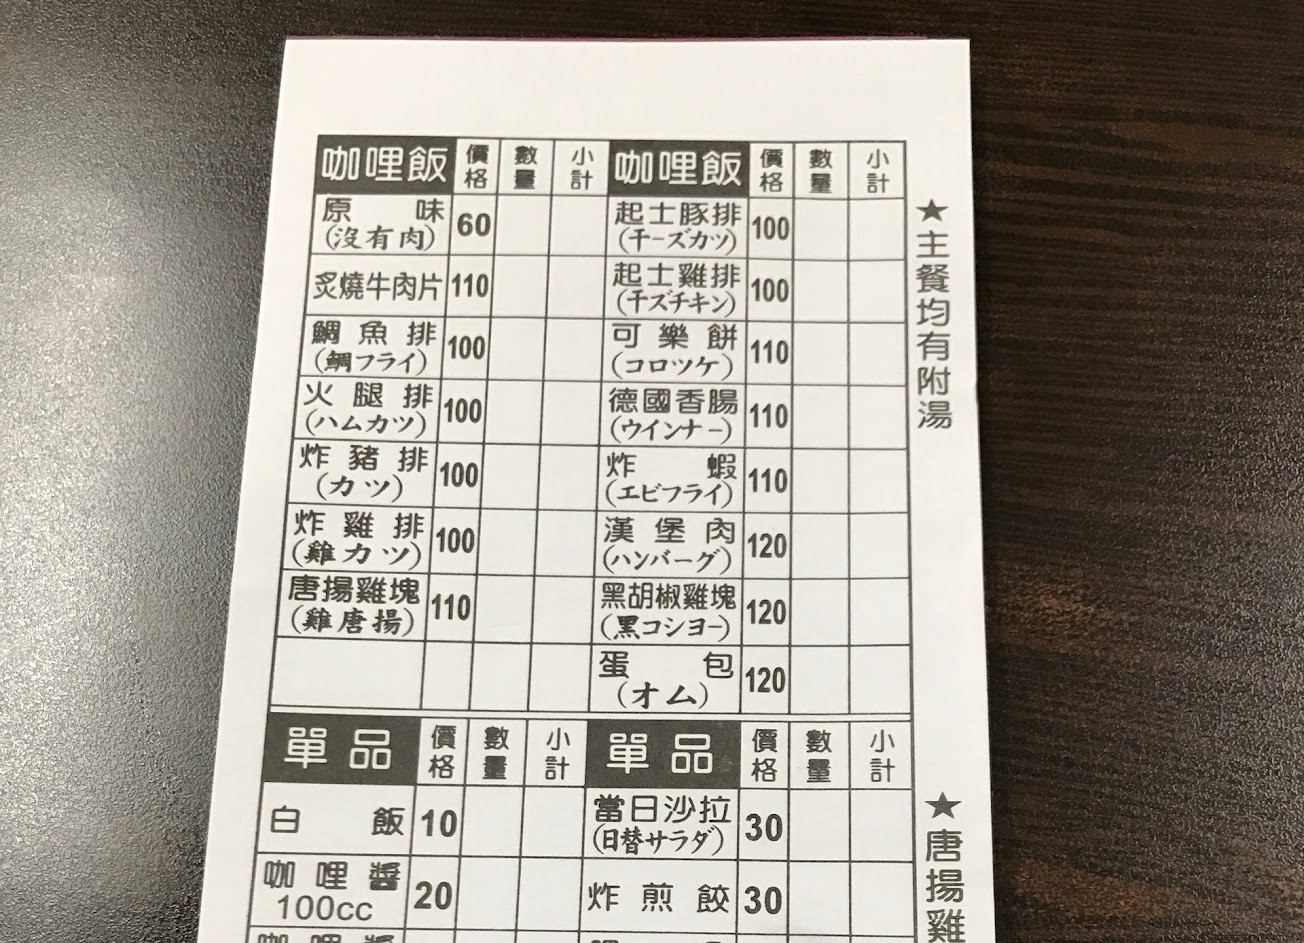 咖哩飯 價格 數量 小計
原味 60
(沒有肉)
炙燒牛肉片 110
鯛魚排 100
(鯛フライ)
火腿排 100
(ハムカツ)
炸豬排 100
(カツ)
炸雞排 100
(雞カツ)
唐揚雞塊 110
(雞唐揚)
咖哩飯 價格 數量 小計
起士豚排 100
(干ーズカツ)
起士雞排 100
(干ズチキン)
可樂餅 110
(コロツケ)
德國香腸 110
(ウインナー)
炸蝦 110
(エビフライ)
漢堡肉 120
(ハンバーグ)
黑胡椒雞塊 120
(黑コショー)
蛋包 120
(オム)
單品 價格 數量 小計
白飯 10
咖哩醬 20
100cc
咖哩醬
單品 價格 數量 小計
當日沙拉 30
(日替サラダ)
炸煎餃 30
★主餐均有附湯
★唐揚雞